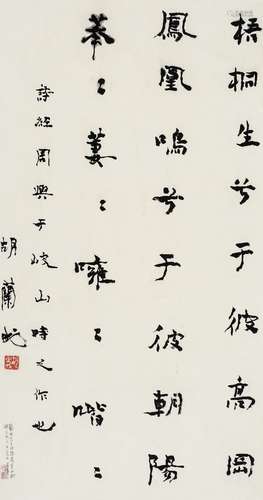 梧桐生兮于彼高岡
鳳凰鳴兮于彼朝陽
菶〻萋〻雝〻喈〻
詩經周興于岐山時之作也
胡蘭成